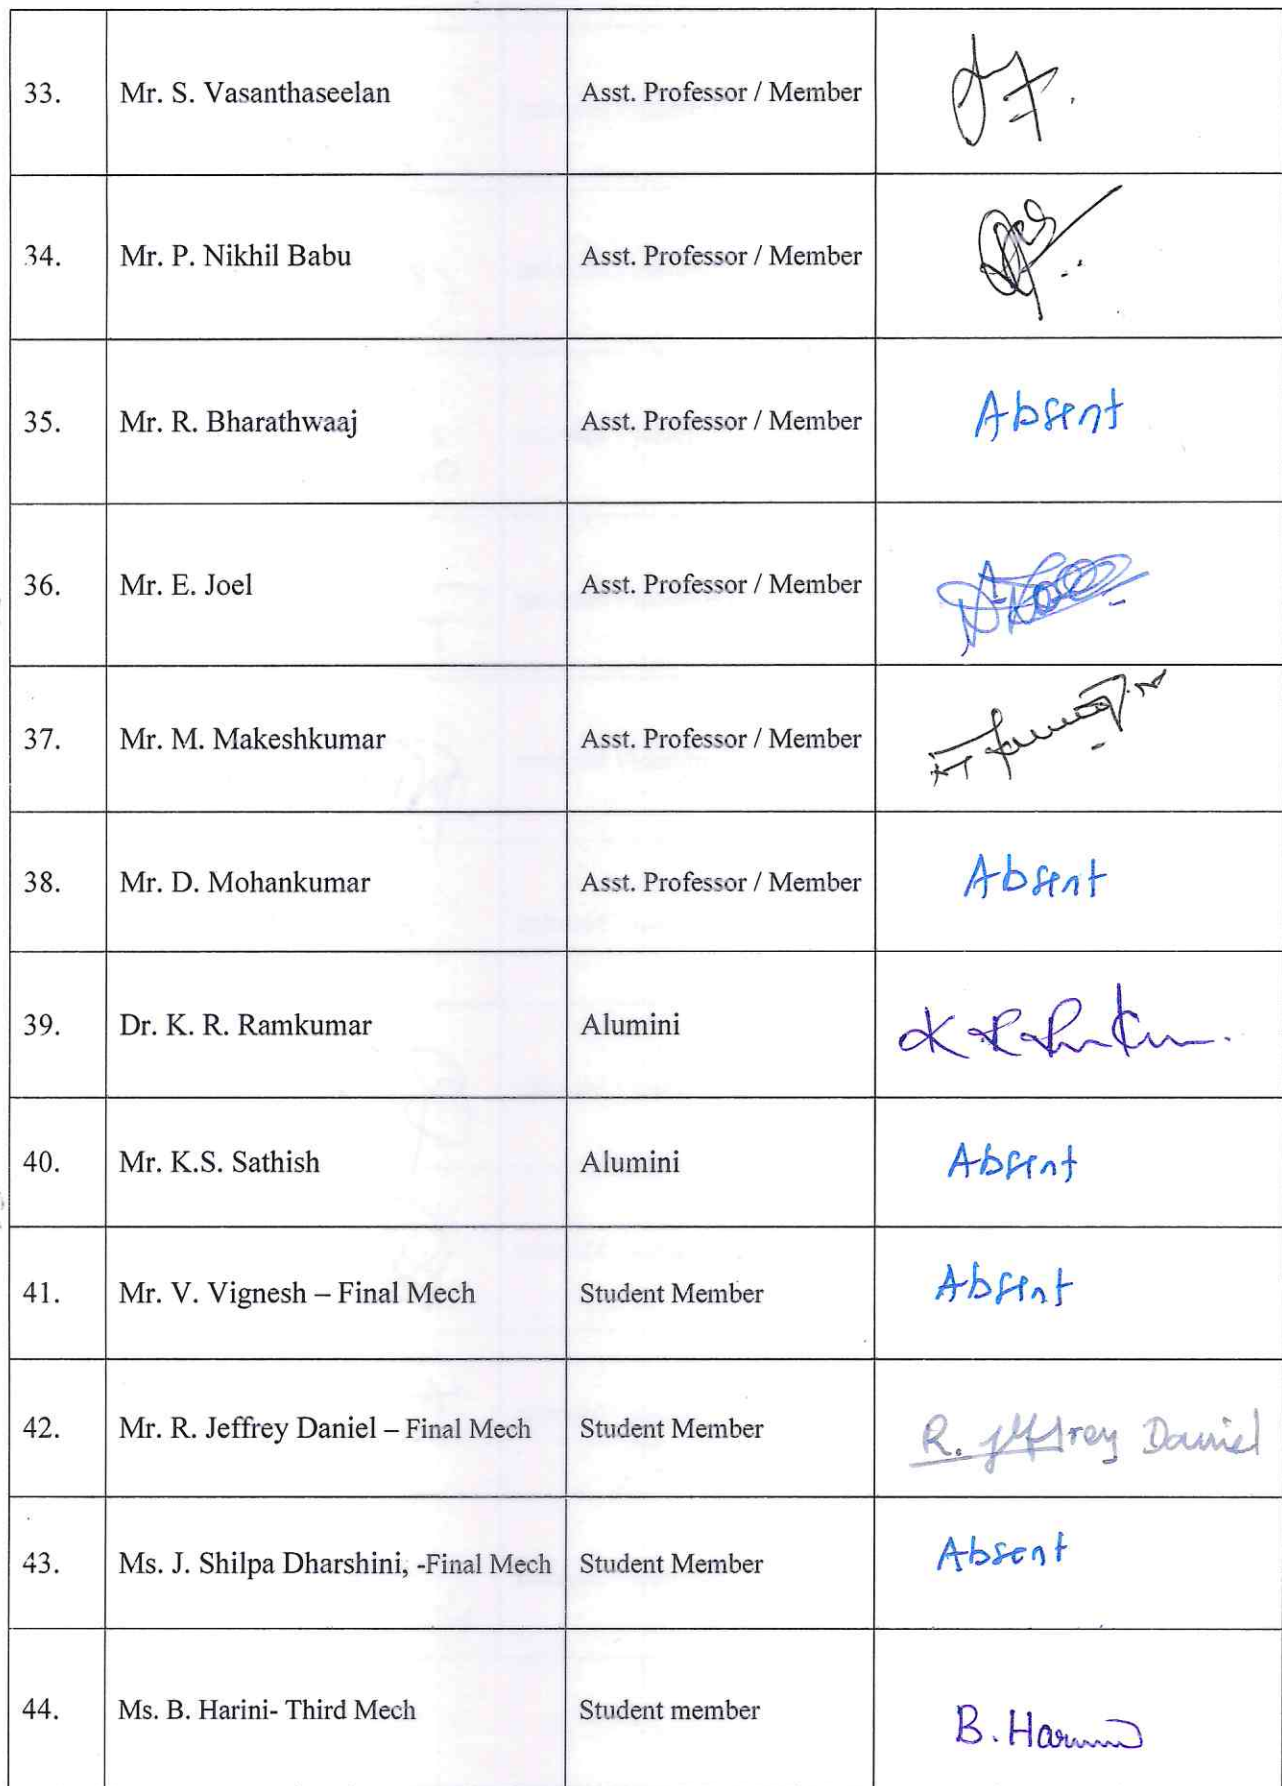 33. Mr. S. Vasanthaseelan Asst. Professor / Member
34. Mr. P. Nikhil Babu Asst. Professor / Member
35. Mr. R. Bharathwaaj Asst. Professor / Member Absent
36. Mr. E. Joel Asst. Professor / Member
37. Mr. M. Makeshkumar Asst. Professor / Member
38. Mr. D. Mohankumar Asst. Professor / Member Absent
39. Dr. K. R. Ramkumar Alumini
40. Mr. K.S. Sathish Alumini Absent
41. Mr. V. Vignesh – Final Mech Student Member Absent
42. Mr. R. Jeffrey Daniel – Final Mech Student Member R. Jeffrey Daniel
43. Ms. J. Shilpa Dharshini, -Final Mech Student Member Absent
44. Ms. B. Harini- Third Mech Student member B. Harini